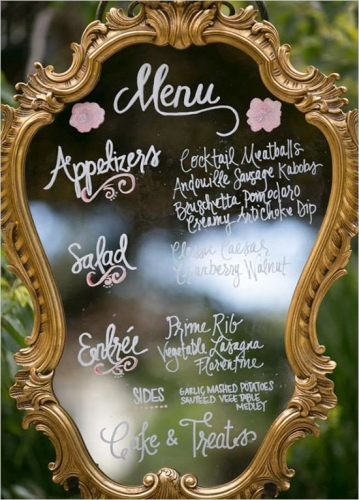 Menu
Appetizers
Cocktail Meatballs
Andouille Sausage Kabobs
Bruschetta Pomodoro
Creamy Artichoke Dip
Salad
Classic Caesar
Cranberry Walnut
Entrée
Prime Rib
Vegetable Lasagna
Florentine
SIDES
GARLIC MASHED POTATOES
SAUTEED VEGETABLE
MEDLEY
Cake & Treats